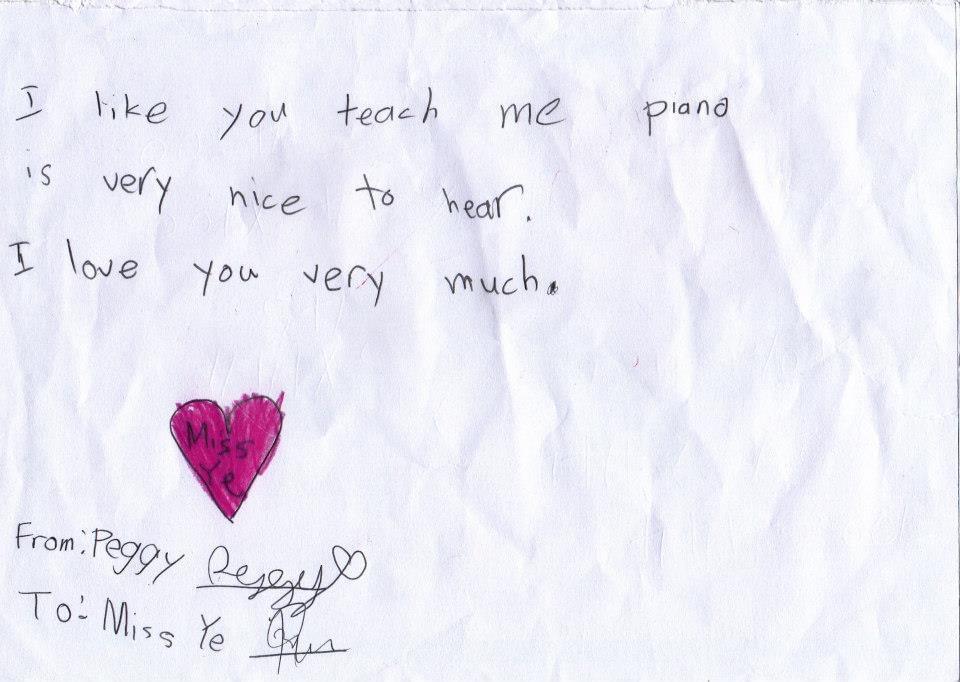 I like you teach me piano
is very nice to hear.
I love you very much.
Miss
Ye
From: Peggy Peggy
To: Miss Ye